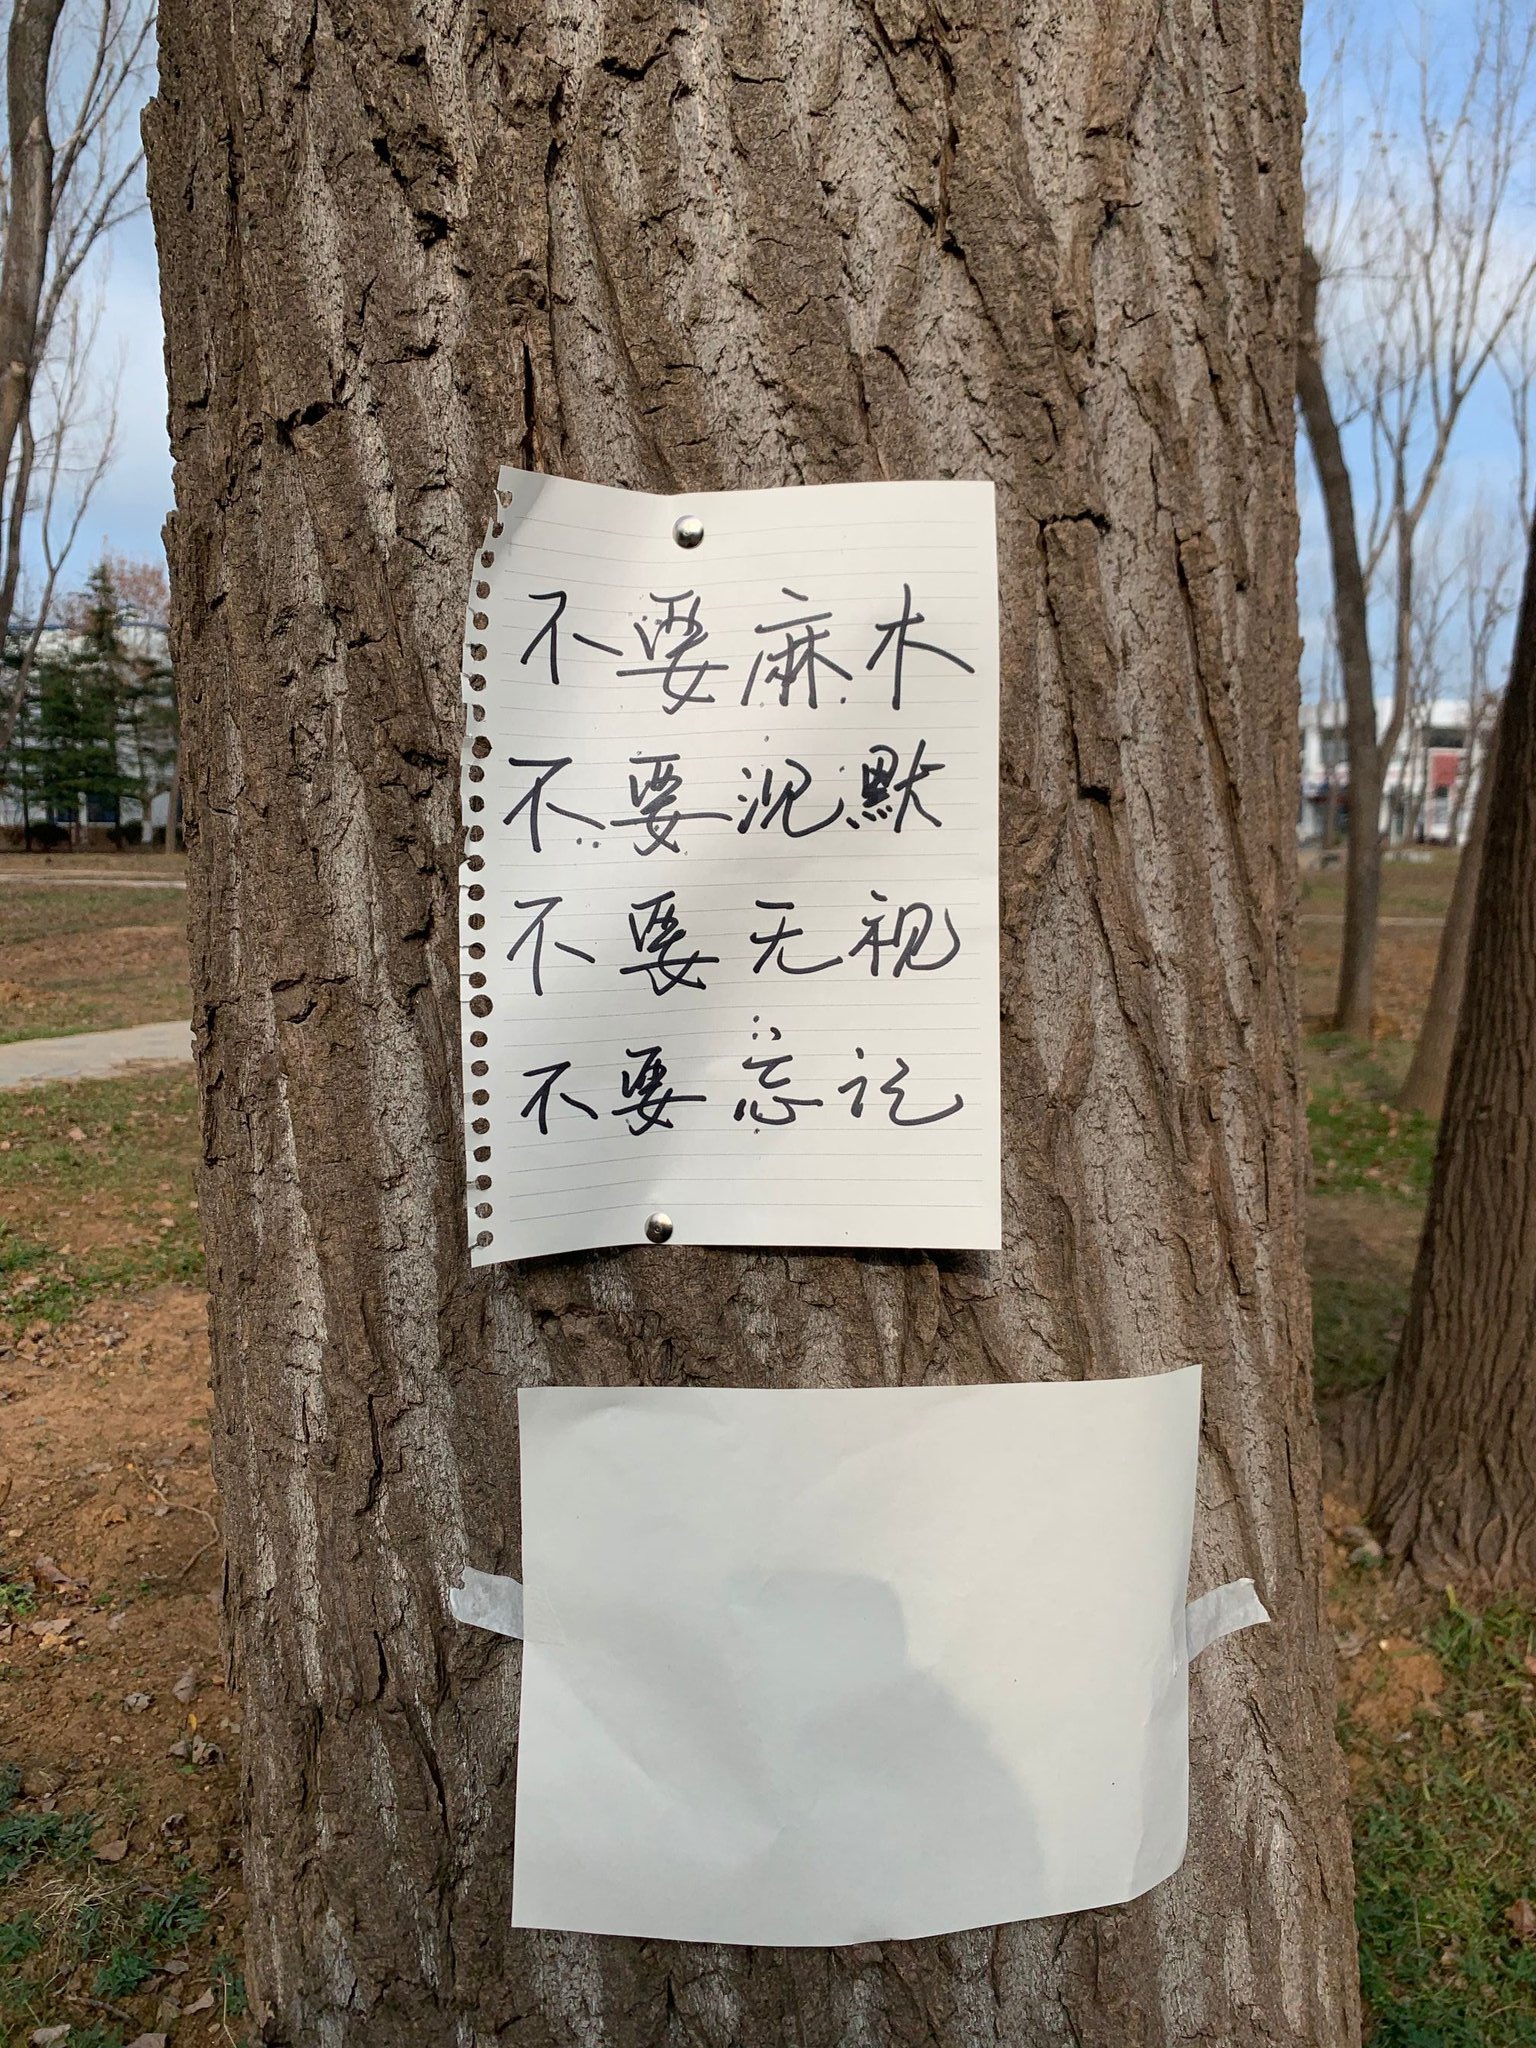 不要麻木
不要沉默
不要无视
不要忘记